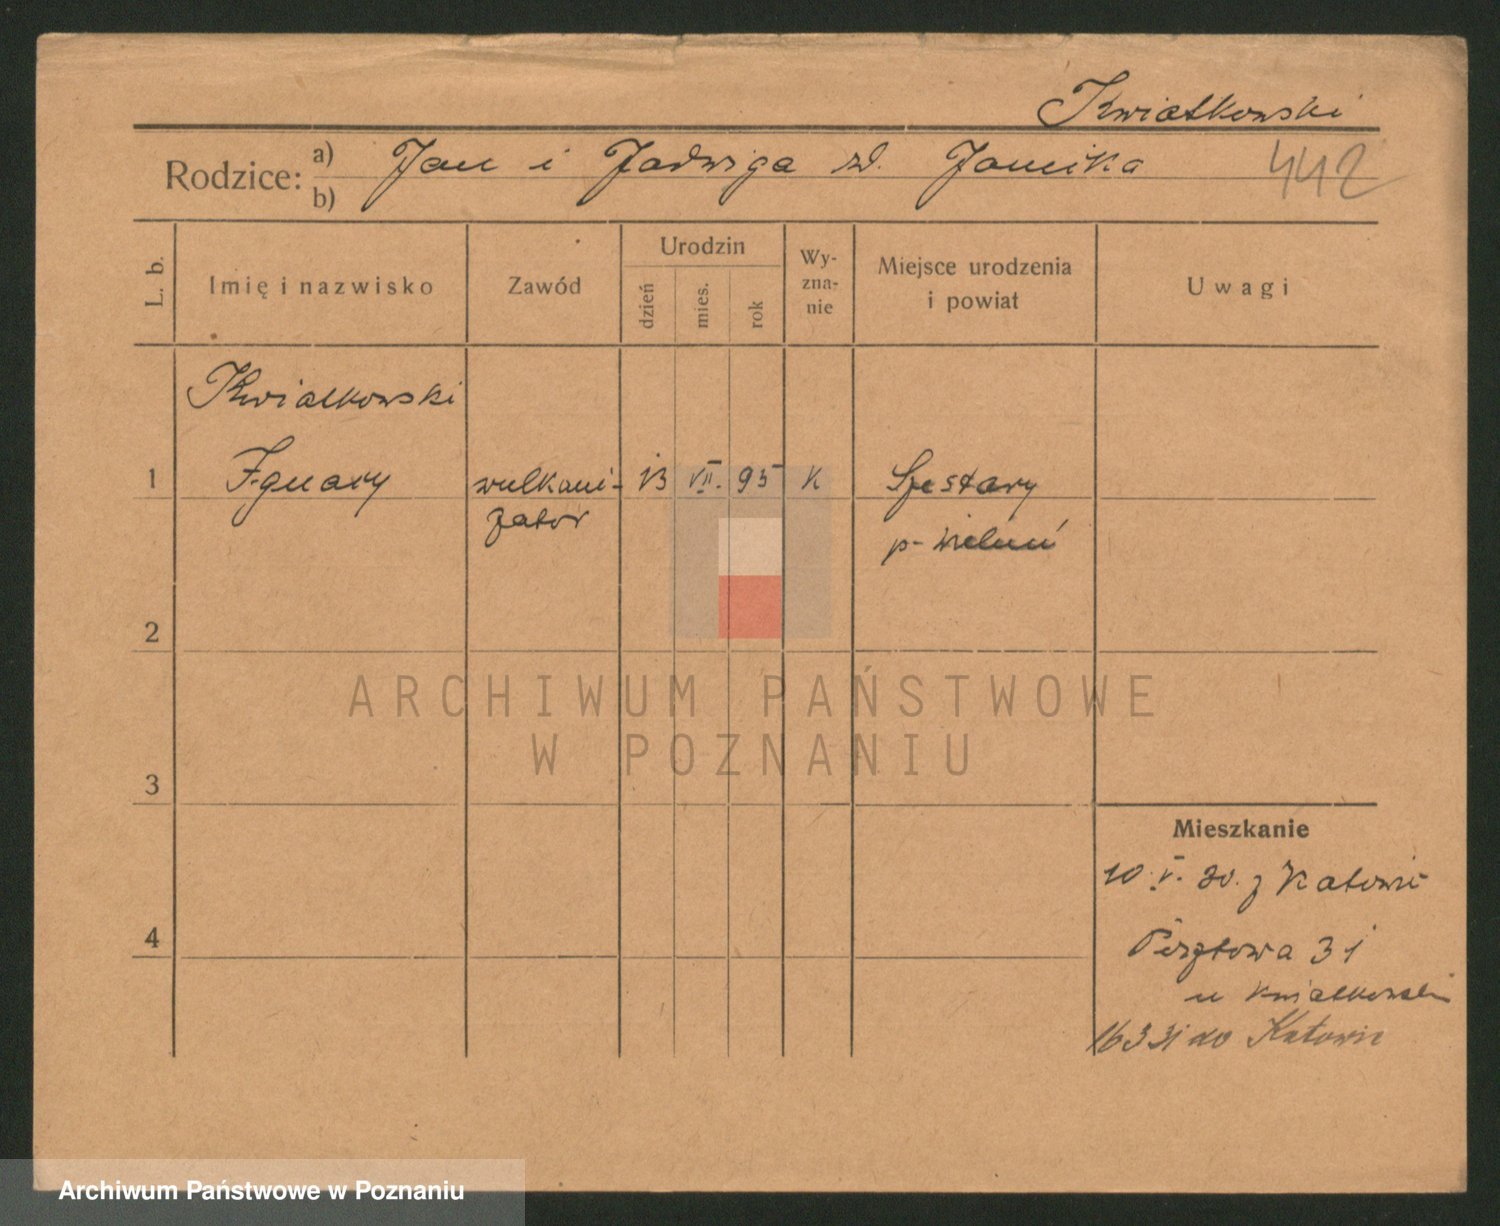 Kwiatkowski
Rodzice: a) b) Jan i Jadwiga zd. Janika
442
L. b.
Imię i nazwisko
Zawód
Urodzin
dzień
mies.
rok
Wy-
zna-
nie
Miejsce urodzenia
i powiat
Uwagi
Kwiatkowski
1 Ignacy wulkani- 13 VII. 95 K
zator
p. Wieluń
2
3
4
ARCHIWUM PAŃSTWOWE
W POZNANIU
Mieszkanie
10.V.30. z Katowic
31
u Kwiatkowski
16 3 31 do Katowic
Archiwum Państwowe w Poznaniu